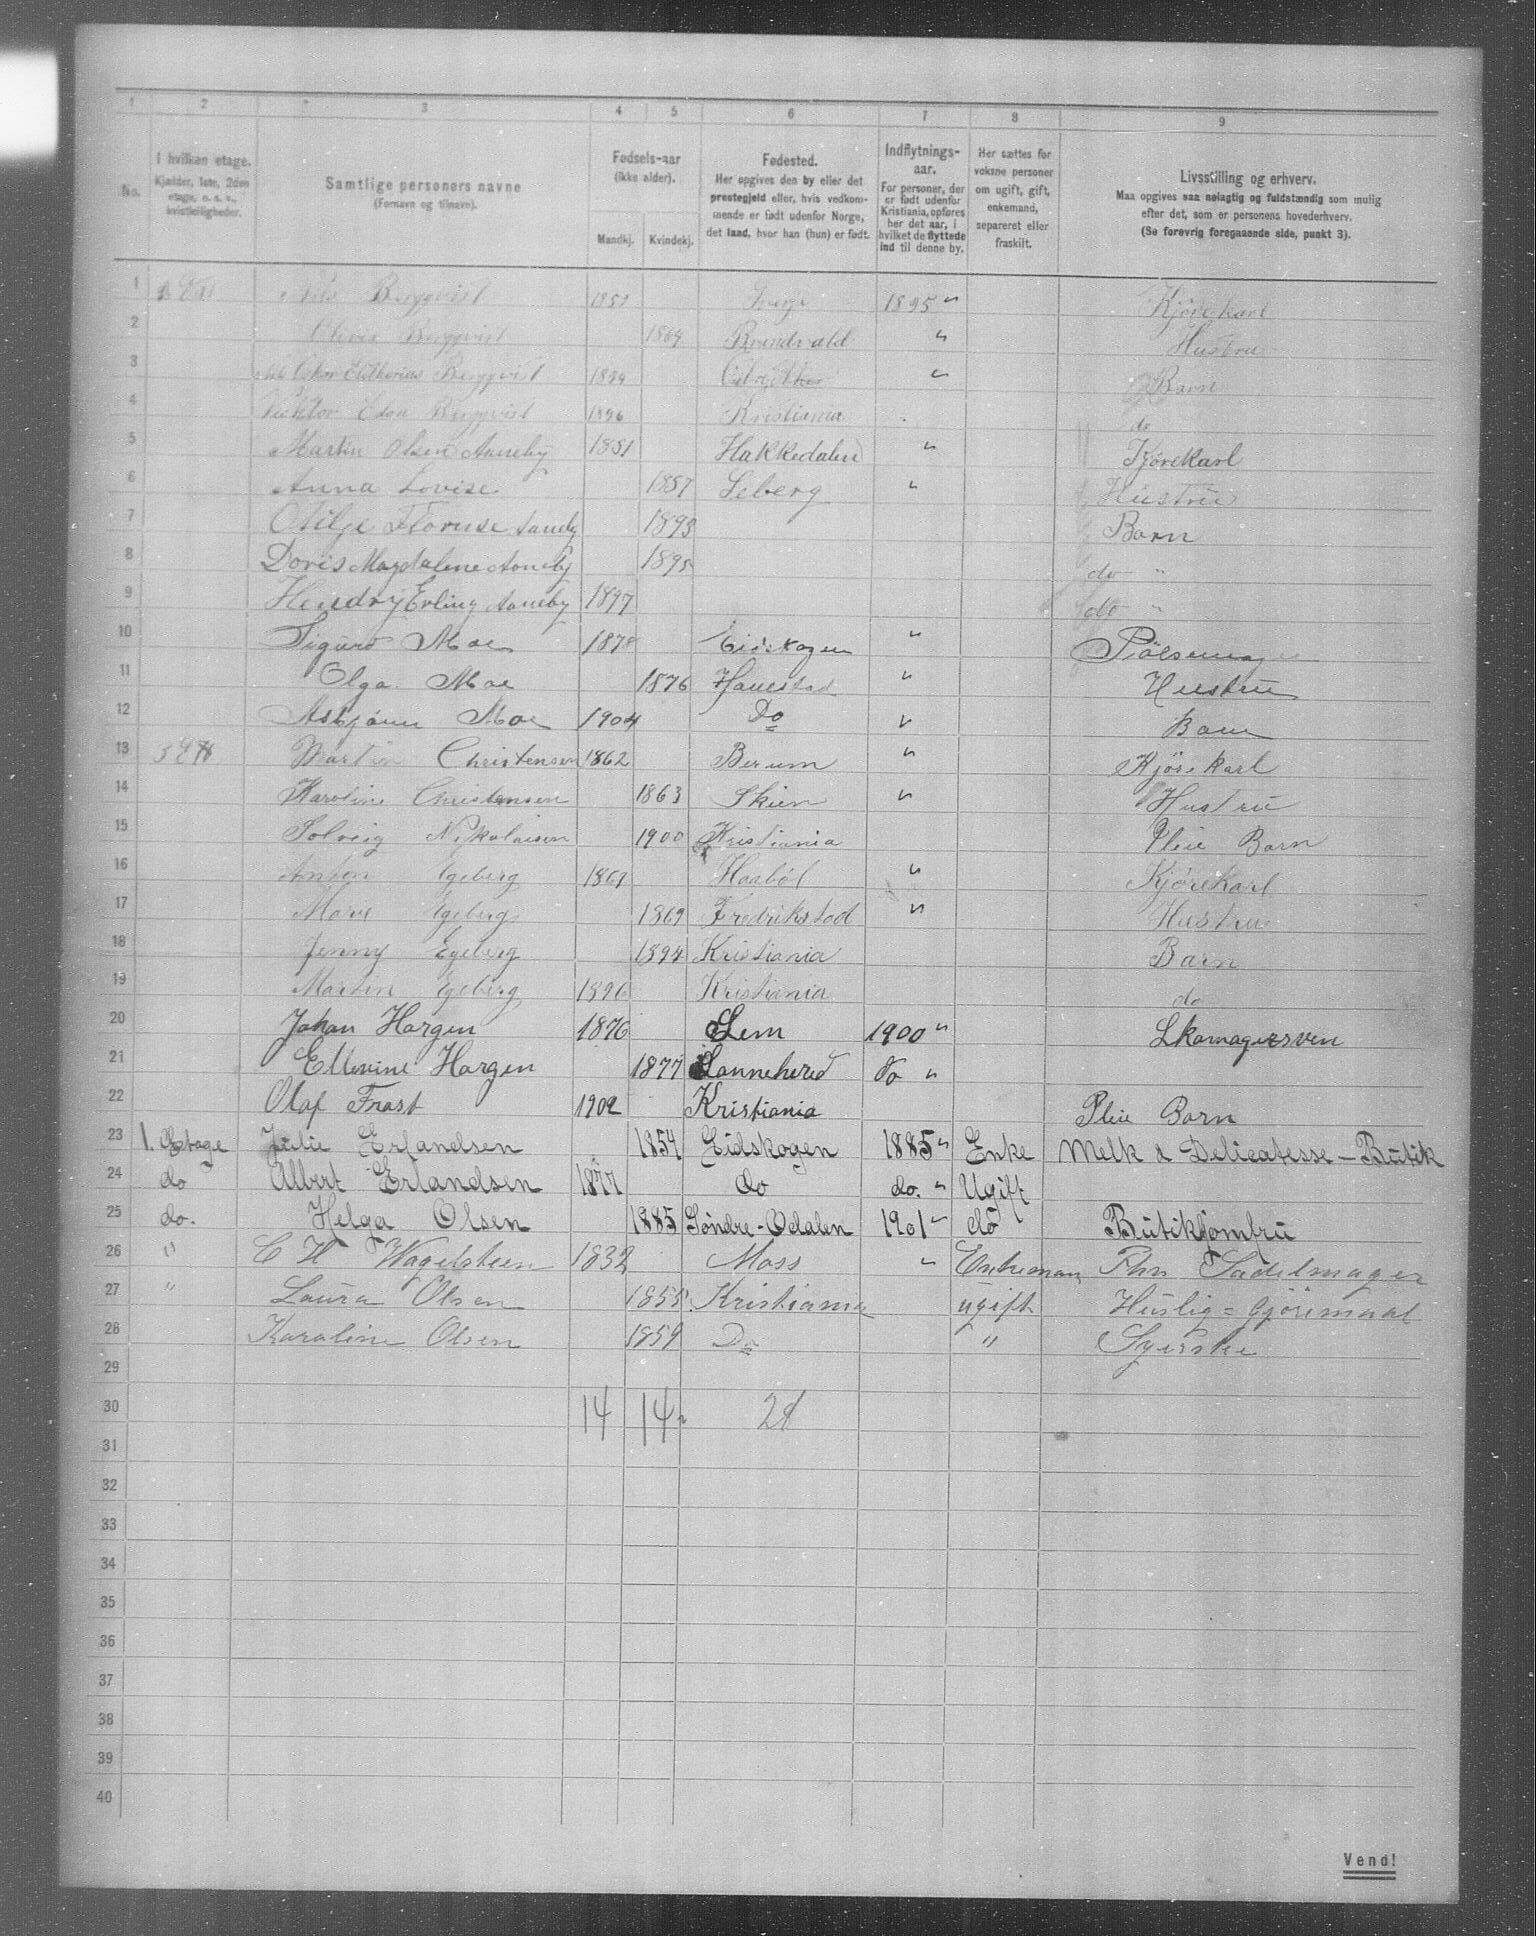 1 2 3 4 5 6 7 8 9
No.
I hvilken etage.
Kjælder, 1ste, 2den
etage, o. s. v.,
kvistleiligheder.
Samtlige personers navne
(Fornavn og tilnavn).
Fødsels-aar
(ikke alder).
Mandkj. Kvindekj.
Fødested.
Her opgives den by eller det
prestegjeld eller, hvis vedkom-
mende er født udenfor Norge,
det land, hvor han (hun) er født.
Indflytnings-
aar.
For personer, der
er født udenfor
Kristiania, opføres
her det aar, i
hvilket de flyttede
ind til denne by.
Her sættes for
voksne personer
om ugift, gift,
enkemand,
separeret eller
fraskilt.
Livsstilling og erhverv.
Maa opgives saa nøiagtig og fuldstændig som mulig
efter det, som er personens hovederhverv.
(Se forøvrig foregaaende side, punkt 3).
1 Nils Bergqvist 1895 " Kjørekarl
2 Bergqvist 1864 " Hustru
3 Oskar Bergqvist " Barn
4 Bergqvist 1896 Kristiania do
5 Martin Olsen Aaneby 1851 Hakkedalen " Kjørekarl
6 Anna Lovise 1857 Seberg " Hustru
7 Otilje Aaneby 1893 Barn
8 Doris Magdalene Aaneby 1895 do "
9 Hendry Erling Aaneby 1897 do "
10 Sigurd Moe 1878 Eidskogen "
11 Olga Moe 1876 Hanestad " Hustru
12 Asbjønn Moe 1904 Do " Barn
13 3 Et Martin Christensen 1862 Berum " Kjørekarl
14 Karoline Christensen 1863 Skien " Hustru
15 Solveig Nikolaisen 1900 Kristiania Pleie Barn
16 Anton Egeberg 1861 Haabøl " Kjørekarl
17 Marie Egeberg 1869 Fredrikstad " Hustru
18 Jenny Egeberg 1894 Kristiania Barn
19 Martin Egeberg 1896 Kristiania do
20 Johan Horgen 1876 Sem 1900 " Skomagersven
21 Ellevine Horgen 1877 Sannehered do "
22 Olaf Frost 1902 Kristiania Pleie Barn
23 1. Etage Julie Erlandsen 1854 Eidskogen 1885 " Enke Melk & Delicatesse-Butik
24 do Albert Erlandsen 1877 do do. " Ugift
25 do. Helga Olsen 1885 Søndre-Odalen 1901 " do Butikjomfru
26 " C H Wagelsteen 1832 Moss " Enkeman Phn Sadelmager
27 " Laura Olsen 1855 Kristiania ugift Huslig = Gjøremaal
28 Karoline Olsen 1859 Do " Syerske
29
30 14 14 28
31
32
33
34
35
36
37
38
39
40
Vend!